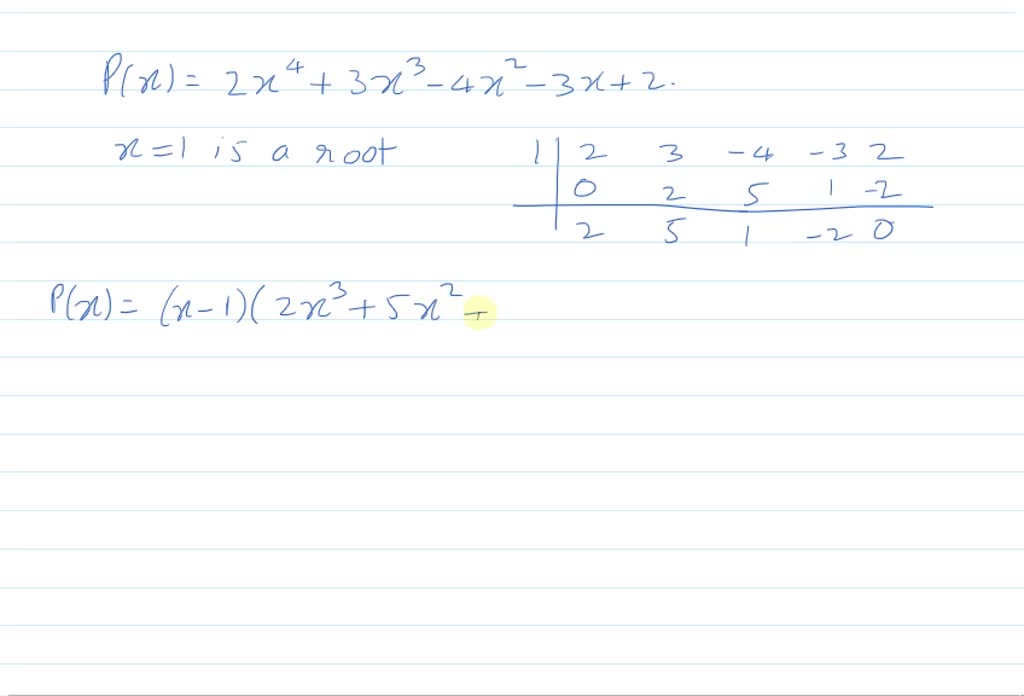 P(x) = 2x⁴ + 3x³ - 4x² - 3x + 2.
x = 1 is a root
1 | 2 3 -4 -3 2
0 2 5 1 -2
2 5 1 -2 0
P(x) = (x-1)(2x³ + 5x² +